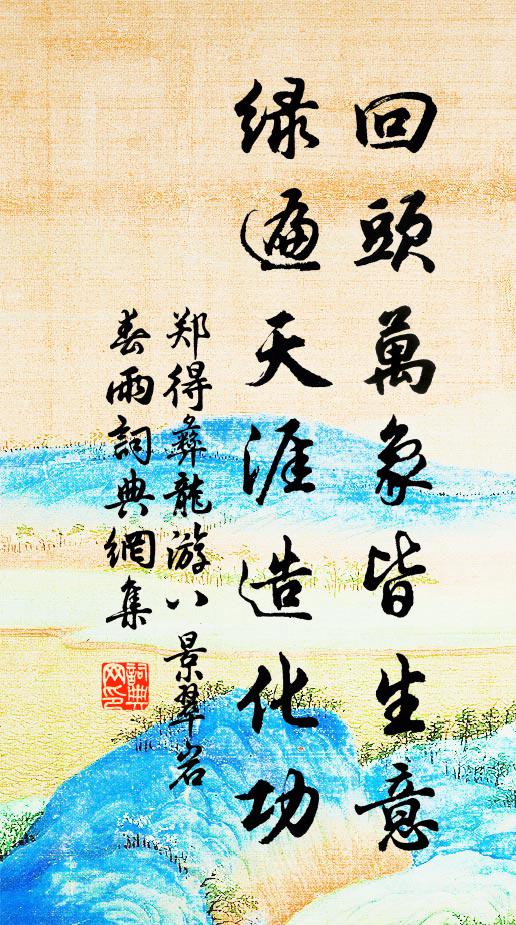 回頭萬象皆生意
緑遍天涯造化功
郑得彝龍游八景翠岩
春雨詞典網集
詞典
网印